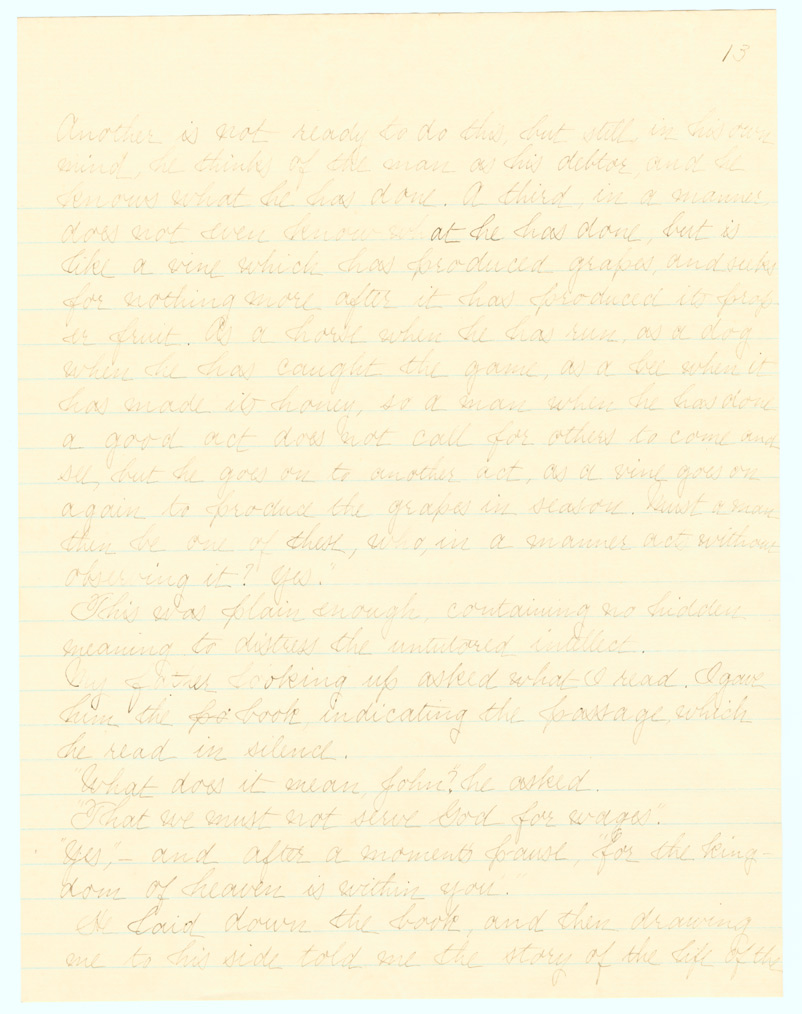 13
Another is not ready to do this, but still in his own
mind, he thinks of the man as his debtor, and he
knows what he has done. A third, in a manner,
does not even know what he has done, but is
like a vine which has produced grapes, and seeks
for nothing more after it has produced its prop-
er fruit. As a horse when he has run, as a dog
when he has caught the game, as a bee when it
has made its honey, so a man when he has done
a good act does not call for others to come and
see, but he goes on to another act, as a vine goes on
again to produce the grapes in season. Must a man
then be one of these, who, in a manner act without
observing it? Yes."
This was plain enough, containing no hidden
meaning to distress the untutored intellect.
My father looking up asked what I read. I gave
him the bo book, indicating the passage, which
he read in silence.
"What does it mean, John"? he asked.
"That we must not serve God for wages".
"Yes", – and after a moments pause, "for the king-
dom of heaven is within you".
He laid down the book, and then drawing
me to his side told me the story of the life of the